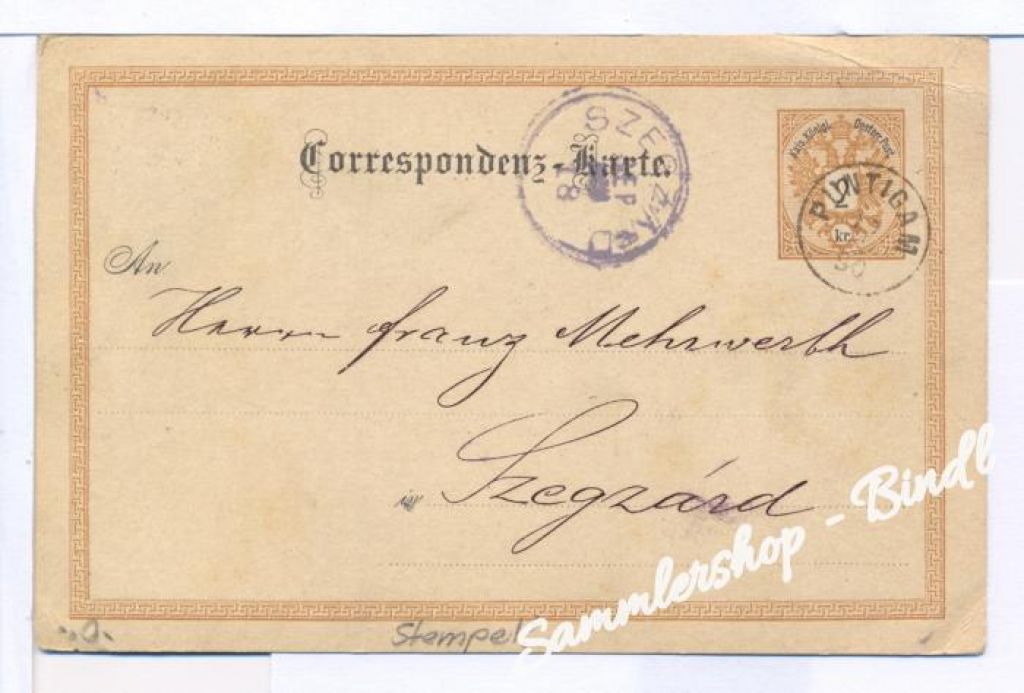 Correspondenz-Karte.
SZEGZARD
SEP
18
Kais. Königl. Oesterr. Post
2
kr.
PUNTIGAM
An
Herrn Franz Mehrwerth
in Szegzárd
Sammlershop - Bindl
Stempel